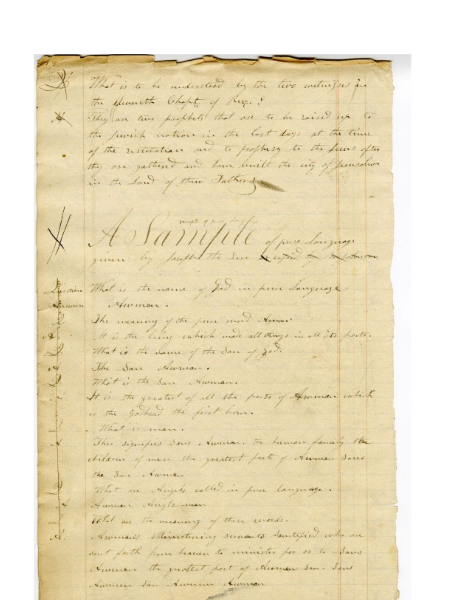 Q What is to be understood by the two witnesses in
the eleventh Chapter of Rev.?
A They are two prophets that are to be raised up to
the Jewish nation in the last days at the time
of the restitution and to prophesy to the Jews after
they are gathered and have built the city of Jerusalem
in the Land of their Fathers
A Sample of pure Language
given by Joseph the Seer
Question What is the name of God in pure Language
Answer Awman.
The meaning of the pure word Awman
It is the being which made all things in all its parts.
What is the name of the Son of God.
The Son Awman.
What is the Son Awman.
It is the greatest of all the parts of Awman which
is the Godhead the first born.
What is man.
This signifies Sons Awman. the human family the
children of men the greatest parts of Awman Sons
the Son Awman
What are Angels called in pure language.
Awman Angls-men
What are the meaning of these words.
A. Awman's ministering servants sanctified who are
sent forth from heaven to minister for or to Sons
Awman the greatest part of Awman Son. Sons
Awman Son Awman Awman